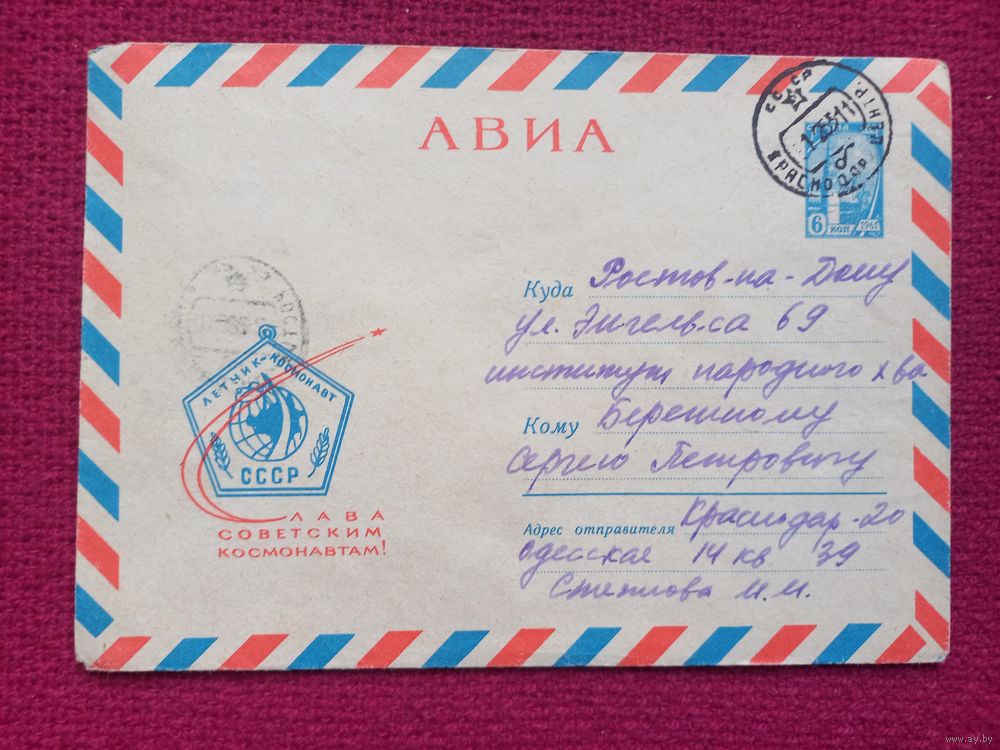 АВИА
СССР
ЦЕНТР
КРАСНОДАР
6 КОП 1961
Куда Ростов-на-Дону
ул. Энгельса 69
институт народного х-ва
Кому Бережному
Сергею Петровичу
Адрес отправителя Краснодар-20
Одесская 14 кв 39
М.М.
ЛЕТЧИК-КОСМОНАВТ
СССР
СЛАВА
СОВЕТСКИМ
КОСМОНАВТАМ!
www.ay.by